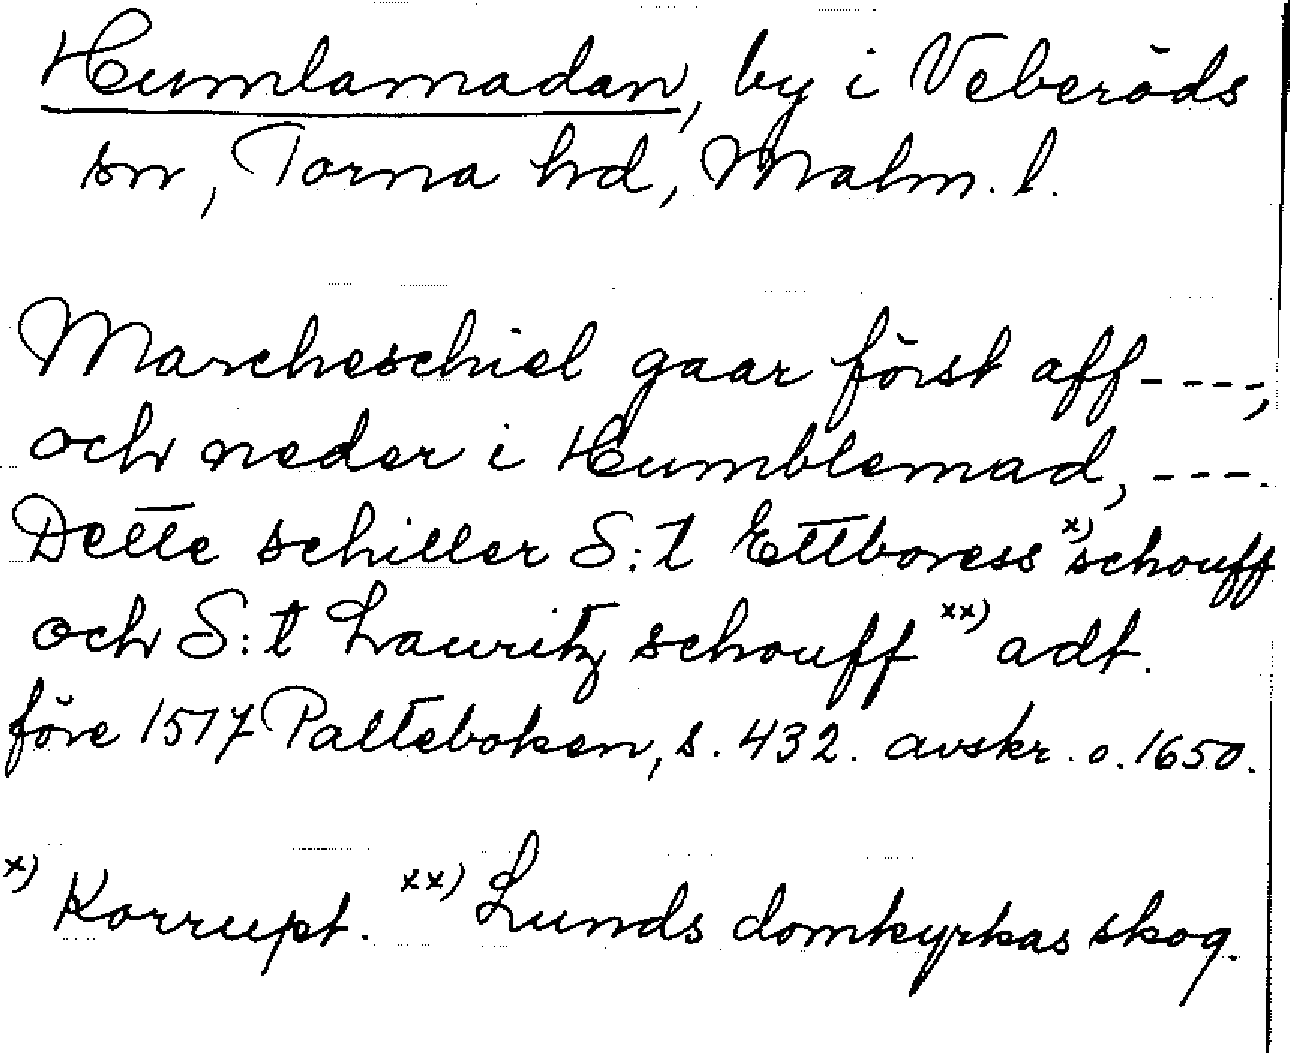 Humlamadan, by i Veberöds
sn, Torna hd, Malm. l.
Marcheschiel gaar först aff ----,
och neder i Humblemad, ---.
Dette schiller S:t Ettboress x) schouff
och S:t Lauritz schouff xx) adt.
före 1517 Palteboken, s. 432. avskr. o. 1650.
x) Korrupt. xx) Lunds domkyrkas skog.